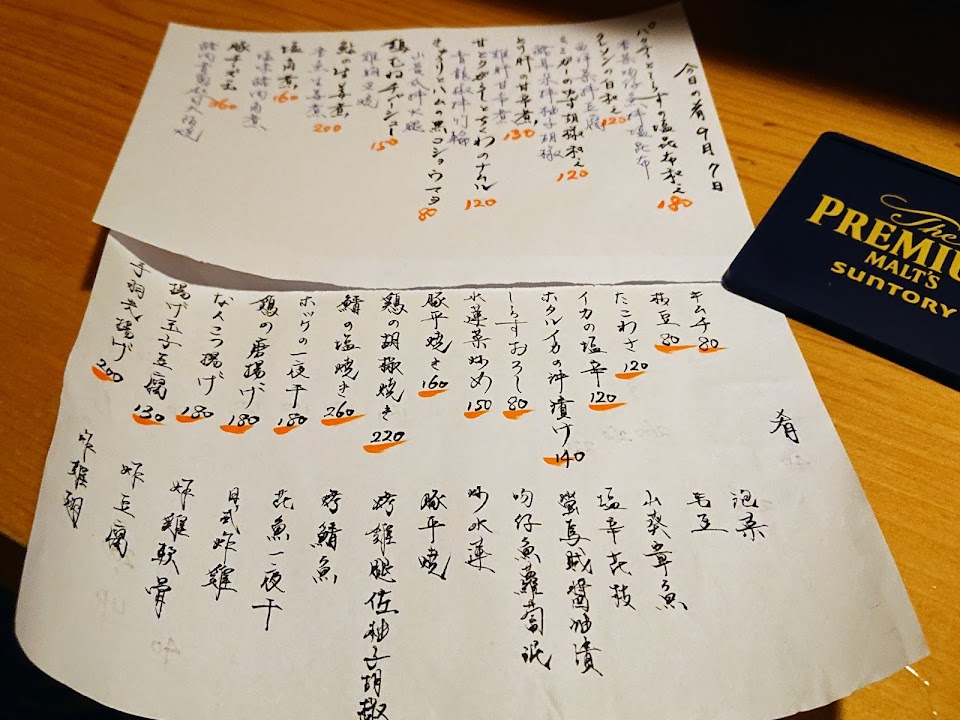 今日の肴 9月7日
パクチーとしらすの塩昆布和え 180
香菜吻仔魚拌塩昆布
クレソンの白和え 120
西洋菜拌豆腐
ミミガーのゆず胡椒和え 120
豬耳朵拌柚子胡椒
とり肝の甘辛煮 130
雞肝甘辛煮
甘とうがらしとちくわのナムル 120
青龍椒拌竹輪
きゅうりとハムの黒コショウマヨ 80
小黃瓜拌火腿
鶏むねチャーシュー 150
雞胸叉燒
鮪の生姜煮 200
塩角煮 160
塩味豬肉角煮
豚チーズ玉 260
肴
キムチ 80
枝豆 80
たこわさ 120
イカの塩辛 120
ホタルイカの沖漬け 140
しらすおろし 80
水蓮菜炒め 150
豚平焼き 160
鶏の胡椒焼き 220
鯖の塩焼き 260
ホッケの一夜干 180
鶏の唐揚げ 180
なんこつ揚げ 180
揚げ玉子豆腐 130
手羽先揚げ 200
泡菜
毛豆
山葵章魚
塩辛花枝
螢烏賊醬油漬
吻仔魚蘿蔔泥
炒水蓮
豚平燒
烤雞腿佐柚子胡椒
烤鯖魚
花魚一夜干
日式炸雞
炸雞軟骨
炸豆腐
炸雞翅
The
PREMIU
MALT'S
SUNTORY